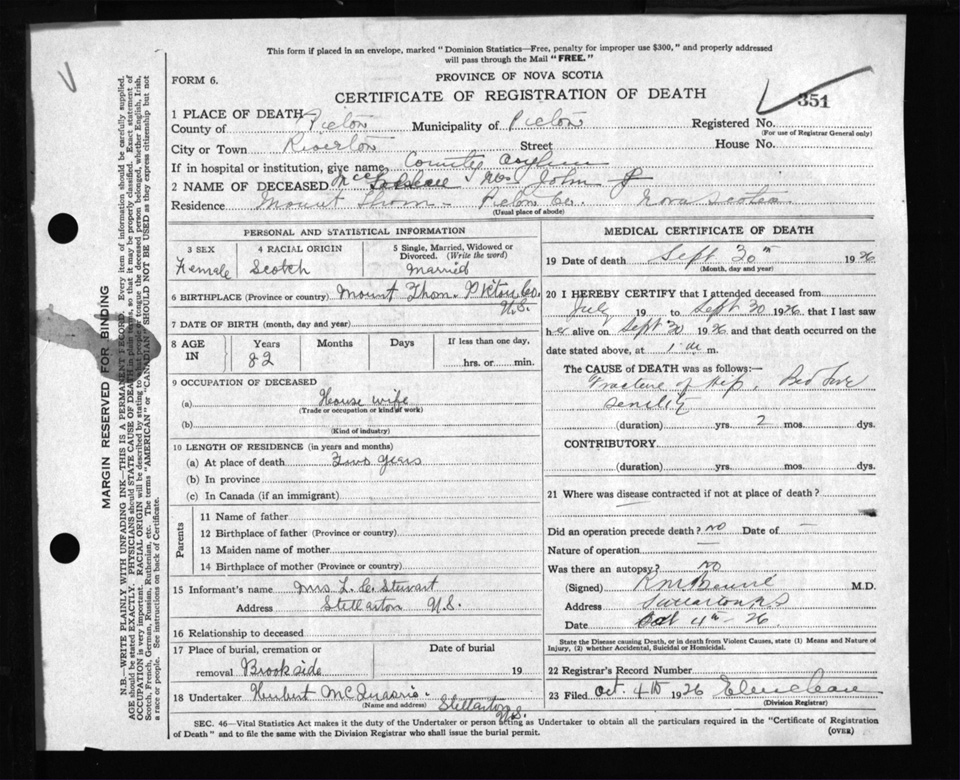 This form if placed in an envelope, marked "Dominion Statistics—Free, penalty for improper use $300," and properly addressed
will pass through the Mail "FREE."
FORM 6.
PROVINCE OF NOVA SCOTIA
CERTIFICATE OF REGISTRATION OF DEATH
351
1 PLACE OF DEATH
County of Pictou Municipality of Pictou Registered No.
(For use of Registrar General only)
City or Town Riverton Street House No.
If in hospital or institution, give name County Asylum
2 NAME OF DECEASED Mrs John
Residence Mount Thom Pictou Co. Nova Scotia
(Usual place of abode)
PERSONAL AND STATISTICAL INFORMATION
3 SEX Female
4 RACIAL ORIGIN Scotch
5 Single, Married, Widowed or Divorced. (Write the word) Married
6 BIRTHPLACE (Province or country) Mount Thom. Pictou Co. N.S.
7 DATE OF BIRTH (month, day and year)
8 AGE IN Years 82 Months Days If less than one day, hrs. or min.
9 OCCUPATION OF DECEASED
(a) House wife
(Trade or occupation or kind of work)
(b)
(Kind of industry)
10 LENGTH OF RESIDENCE (in years and months)
(a) At place of death Two years
(b) In province
(c) In Canada (if an immigrant)
Parents
11 Name of father
12 Birthplace of father (Province or country)
13 Maiden name of mother
14 Birthplace of mother (Province or country)
15 Informant's name Mrs L. C. Stewart
Address Stellarton N.S.
16 Relationship to deceased
17 Place of burial, cremation or removal Brookside Date of burial 19
18 Undertaker Herbert McQuarrie Stellarton N.S.
(Name and address)
MEDICAL CERTIFICATE OF DEATH
19 Date of death Sept 30th 1926
(Month, day and year)
20 I HEREBY CERTIFY that I attended deceased from
July 19 to Sept 30 1926, that I last saw
her alive on Sept 30 1926 and that death occurred on
date stated above, at 1 a m.
The CAUSE of DEATH was as follows:—
Fracture of Hip, Bed Sore
Senility
(duration) yrs. 2 mos. dys.
CONTRIBUTORY
(duration) yrs. mos. dys.
21 Where was disease contracted if not at place of death?
Did an operation precede death? no Date of —
Nature of operation —
Was there an autopsy? no
(Signed) M.D.
Address Stellarton NS
Date Oct 4th - 26
State the Disease causing Death, or in death from Violent Causes, state (1) Means and Nature of
Injury, (2) whether Accidental, Suicidal or Homicidal.
22 Registrar's Record Number
23 Filed Oct. 4th 1926
(Division Registrar)
SEC. 46—Vital Statistics Act makes it the duty of the Undertaker or person acting as Undertaker to obtain all the particulars required in the "Certificate of Registration
of Death" and to file the same with the Division Registrar who shall issue the burial permit.
(OVER)
MARGIN RESERVED FOR BINDING
N.B.—WRITE PLAINLY WITH UNFADING INK—THIS IS A PERMANENT RECORD. Every item of information should be carefully supplied.
AGE should be stated EXACTLY. PHYSICIANS should STATE CAUSE OF DEATH in plain terms, so that it may be properly classified. Exact statement of
OCCUPATION is very important. RACIAL ORIGIN will be described by stating to what people or tongue the deceased person belonged, whether English, Irish,
Scotch, French, German, Russian, Ruthenian, etc. The terms "AMERICAN" or "CANADIAN" SHOULD NOT BE USED as they express citizenship but not
a race or people. See instructions on back of Certificate.